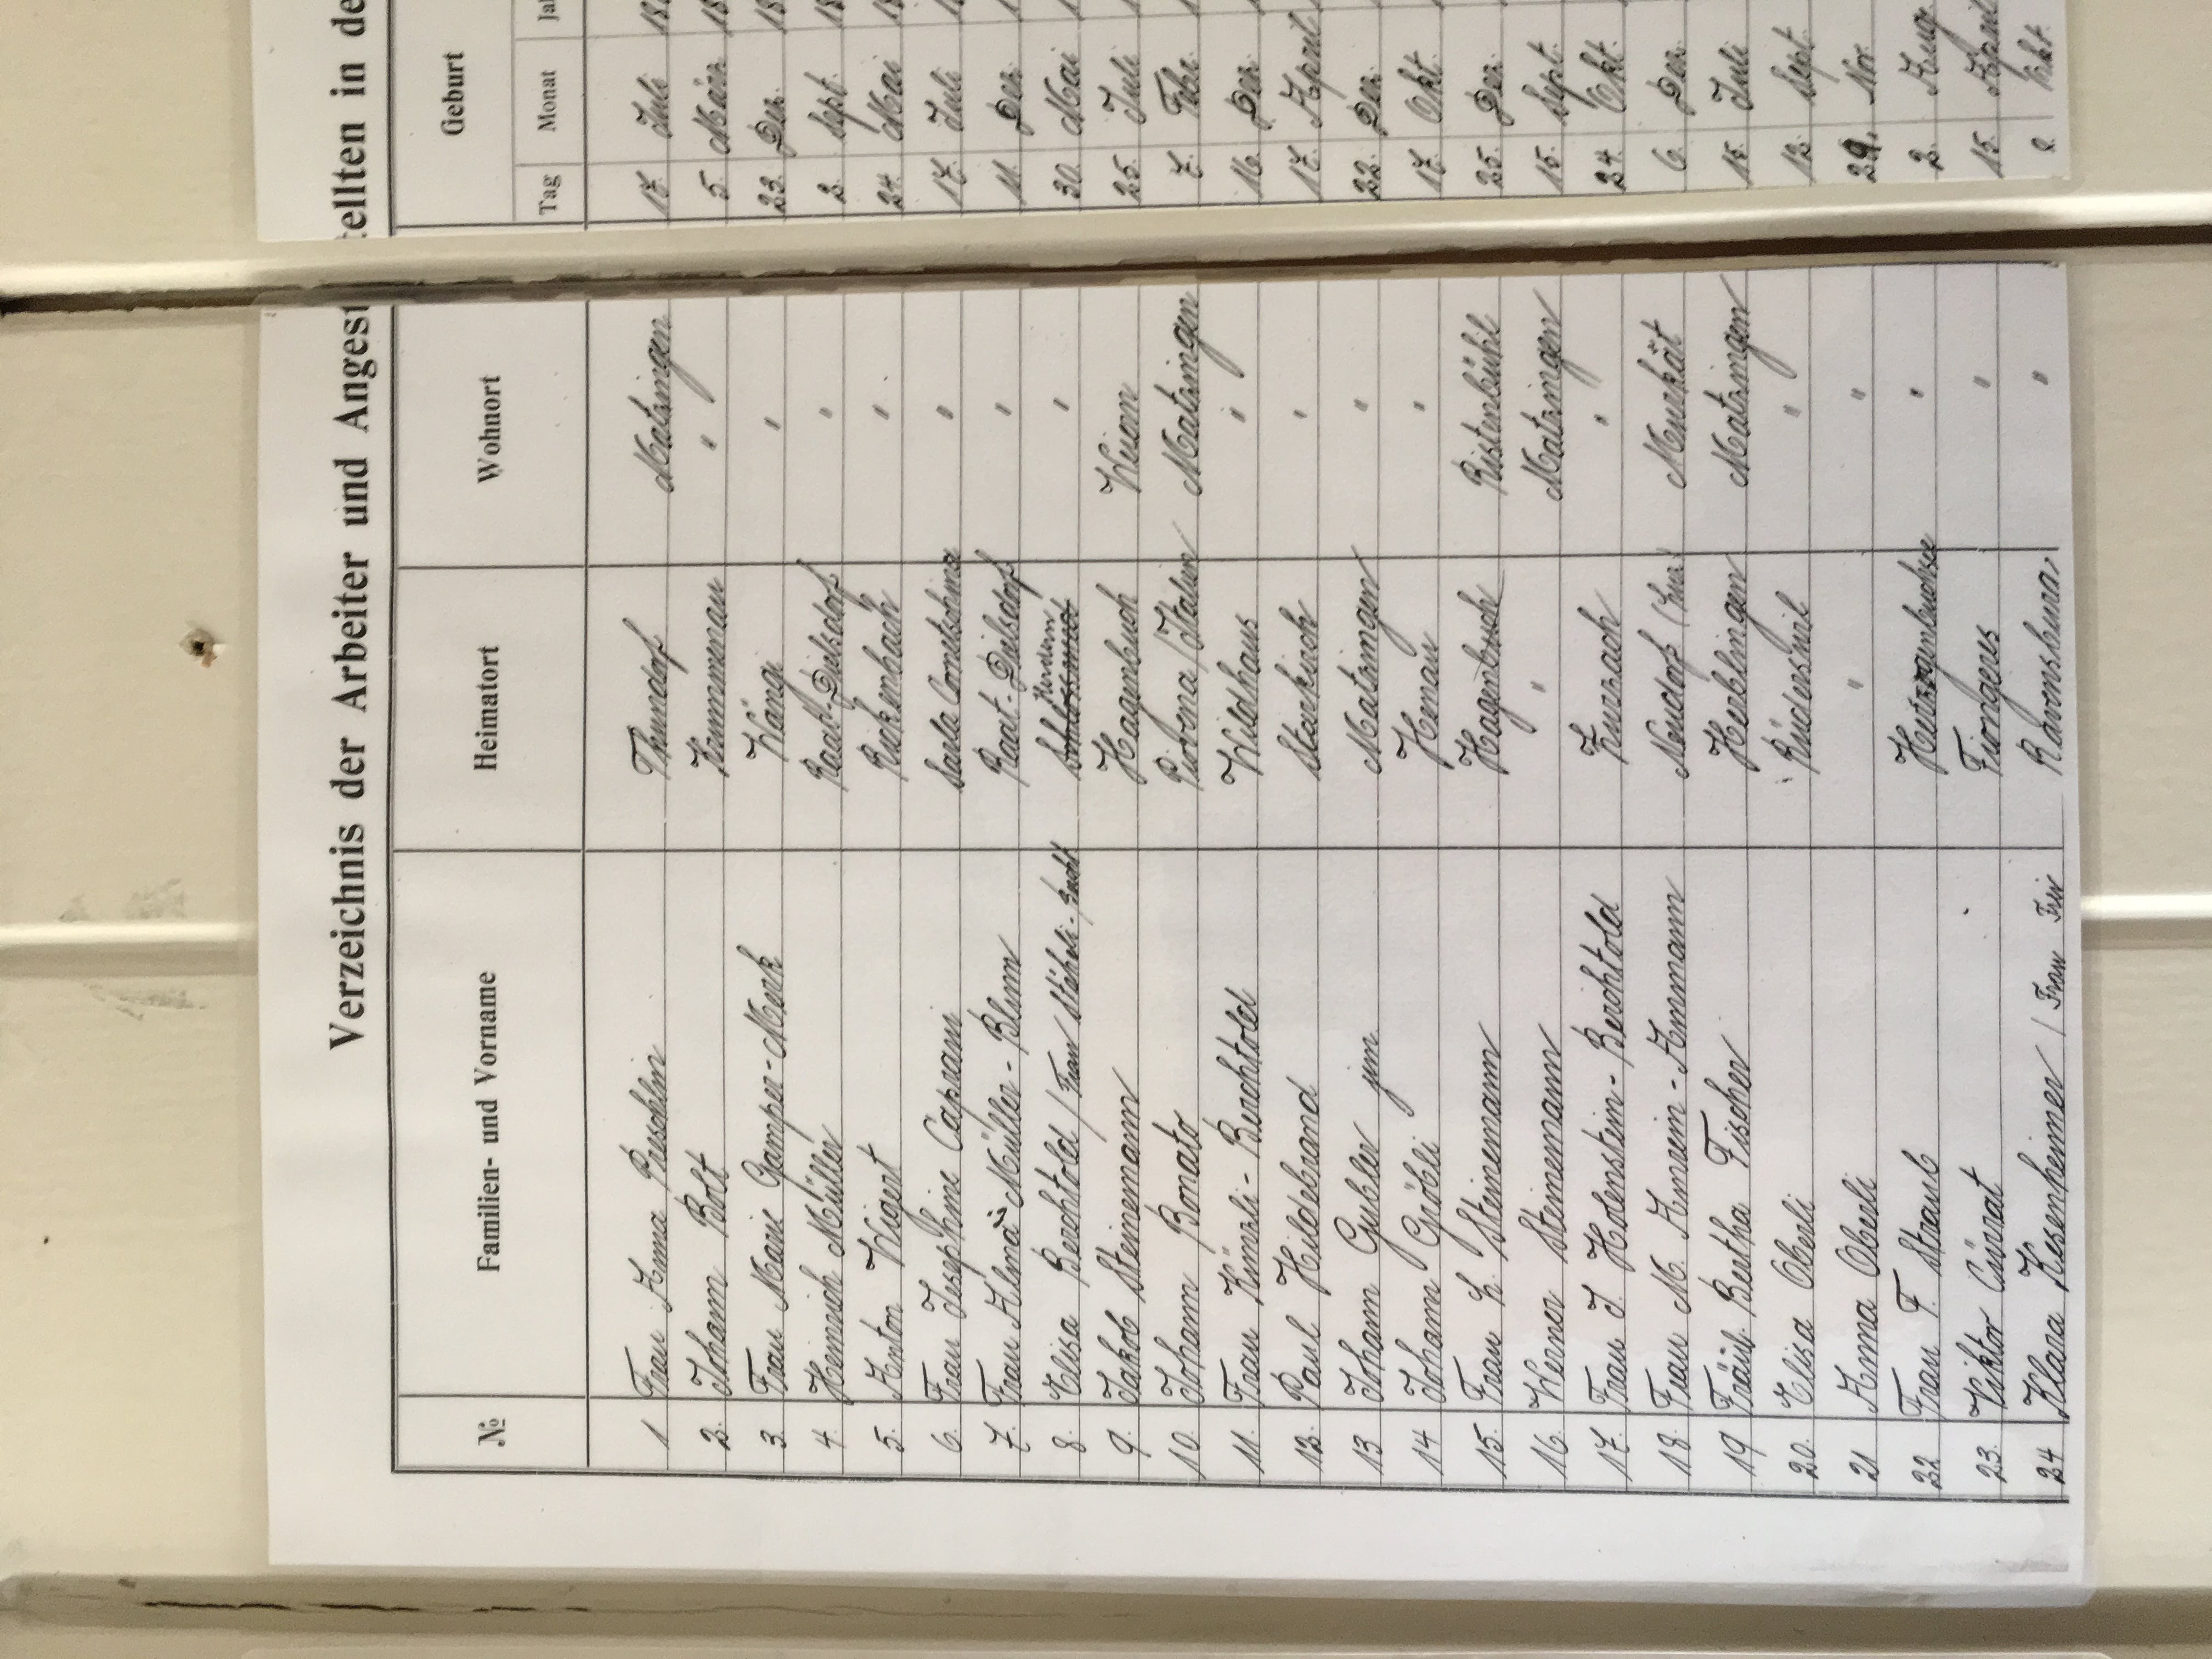 Verzeichnis der Arbeiter und Angest
tellten in de
№ Familien- und Vorname Heimatort Wohnort Geburt
Tag Monat
1 Frau Anna Püschlin Thundorf Matzingen 17. Juli
2. Johann Bolt Kummenau " 5. März
3. Frau Marie Gamper-Merk Wängi " 23. Dez.
4. Heinrich Müller Raat-Dielsdorf " 2. Sept.
5. Anton Wigert Rickenbach " 24. Mai
6. Frau Josephine Caprani " 17. Juli
7. Frau Alma Müller-Blum Raat-Dielsdorf " 11. Dez.
8. Elisa Berchtold / Frau Stäheli- Herdern " 30. Mai
9. Jakob Steinemann Hagenbuch 25. Juli
10. Johann Bonato Matzingen 7. Febr.
11. Frau Künzli-Berchtold Wildhaus " 16. Dez.
12. Paul Hildebrand Starkirch " 17. April
13 Johann Gubler jun Matzingen " 22. Dez.
14 Johann Gröbli Henau " 17. Okt.
15. Frau L. Steinemann Hagenbuch Ristenbühl 25. Dez.
16. Werner Steinemann " Matzingen 15. Sept.
17. Frau J. Holenstein-Berchtold Zurzach " 24. Okt.
18. Frau M. Amwein-Ammann Neudorf Murkät 6. Dez.
19 Fräul. Bertha Fischer Herblingen Matzingen 15. Juli
20. Elisa Oberli Rüderswil " 12. Sept.
21 Anna Oberli " " 29. Nov.
22 Frau F. Straub Herzogenbuchsee " 2. Aug.
23. Viktor Cünrat " 15. April
24 Klara Kesenheimer / Frau Ravensburg " 2. Okt.